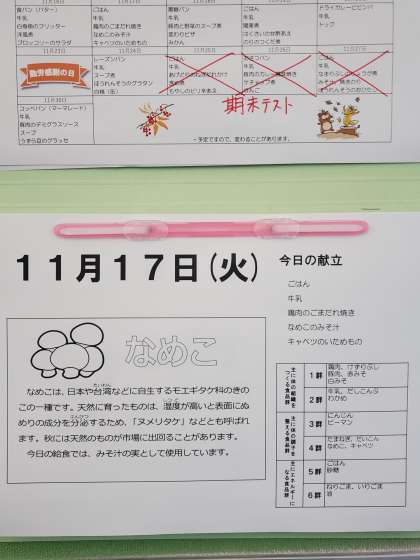 11月16日 11月17日 11月18日 11月19日 11月20日
食パン（バター） ごはん 黒糖パン ごはん ドライカレーピビンバ
牛乳 牛乳 牛乳 牛乳 牛乳
白身魚のフリッター 鶏肉のごまだれ焼き 豚肉と野菜のスープ煮
洋風煮 なめこのみそ汁 変わりピザ はくさいとお麩煮
ブロッコリーのサラダ キャベツのいためもの みかん のりのつくだ煮
11月23日 11月24日 11月25日 11月26日 11月27日
勤労感謝の日
レーズンパン
牛乳
スープ煮
ほうれんそうのグラタン
白桃（缶）
ごはん
牛乳
もやしのピリ辛あえ
牛乳
りんご
牛乳
ほうれんそうのおひたし
期末テスト
11月30日
コッペパン（マーマレード）
牛乳
鶏肉のデミグラスソース
スープ
うまうま豆のグラッセ
～予定ですので、変わることがあります。
11月17日(火)
今日の献立
ごはん
牛乳
鶏肉のごまだれ焼き
なめこのみそ汁
キャベツのいためもの
なめこ
なめこは、日本や台湾などに自生するモエギタケ科のきの
この一種です。天然に育ったものは、湿度が高いと表面にぬ
めりの成分を分泌するため、「ヌメリタケ」などとも呼ばれ
ます。秋には天然のものが市場に出回ることがあります。
今日の給食では、みそ汁の実として使用しています。
主に体の組織をつくる食品群
1群 鶏肉、けずりぶし
豚肉、赤みそ
白みそ
2群 牛乳、だしこんぶ
わかめ
主に体の調子を整える食品群
3群 にんじん
ピーマン
4群 たまねぎ、だいこん
なめこ、キャベツ
主にエネルギーになる食品群
5群 ごはん
砂糖
6群 ねりごま、いりごま
油